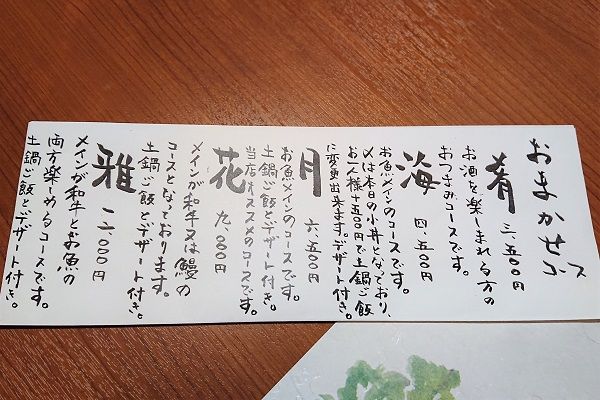 おまかせコース
肴 三、五〇〇円
お酒を楽しまれる方の
おつまみコースです。
海 四、五〇〇円
お魚メインのコースです。
〆は本日の小丼となっており、
お一人様＋五〇〇円で土鍋ご飯
に変更出来ます。デザート付き。
月 六、五〇〇円
お魚メインのコースです。
土鍋ご飯とデザート付き。
当店オススメのコースです。
花 九、〇〇〇円
メインが和牛又は鰻の
コースとなっております。
土鍋ご飯とデザート付き。
雅 一二、〇〇〇円
メインが和牛とお魚の
両方楽しめるコースです。
土鍋ご飯とデザート付き。